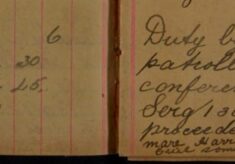 6
30
45.
Duty
patroll
confere
Serg
proceede
mare Harr